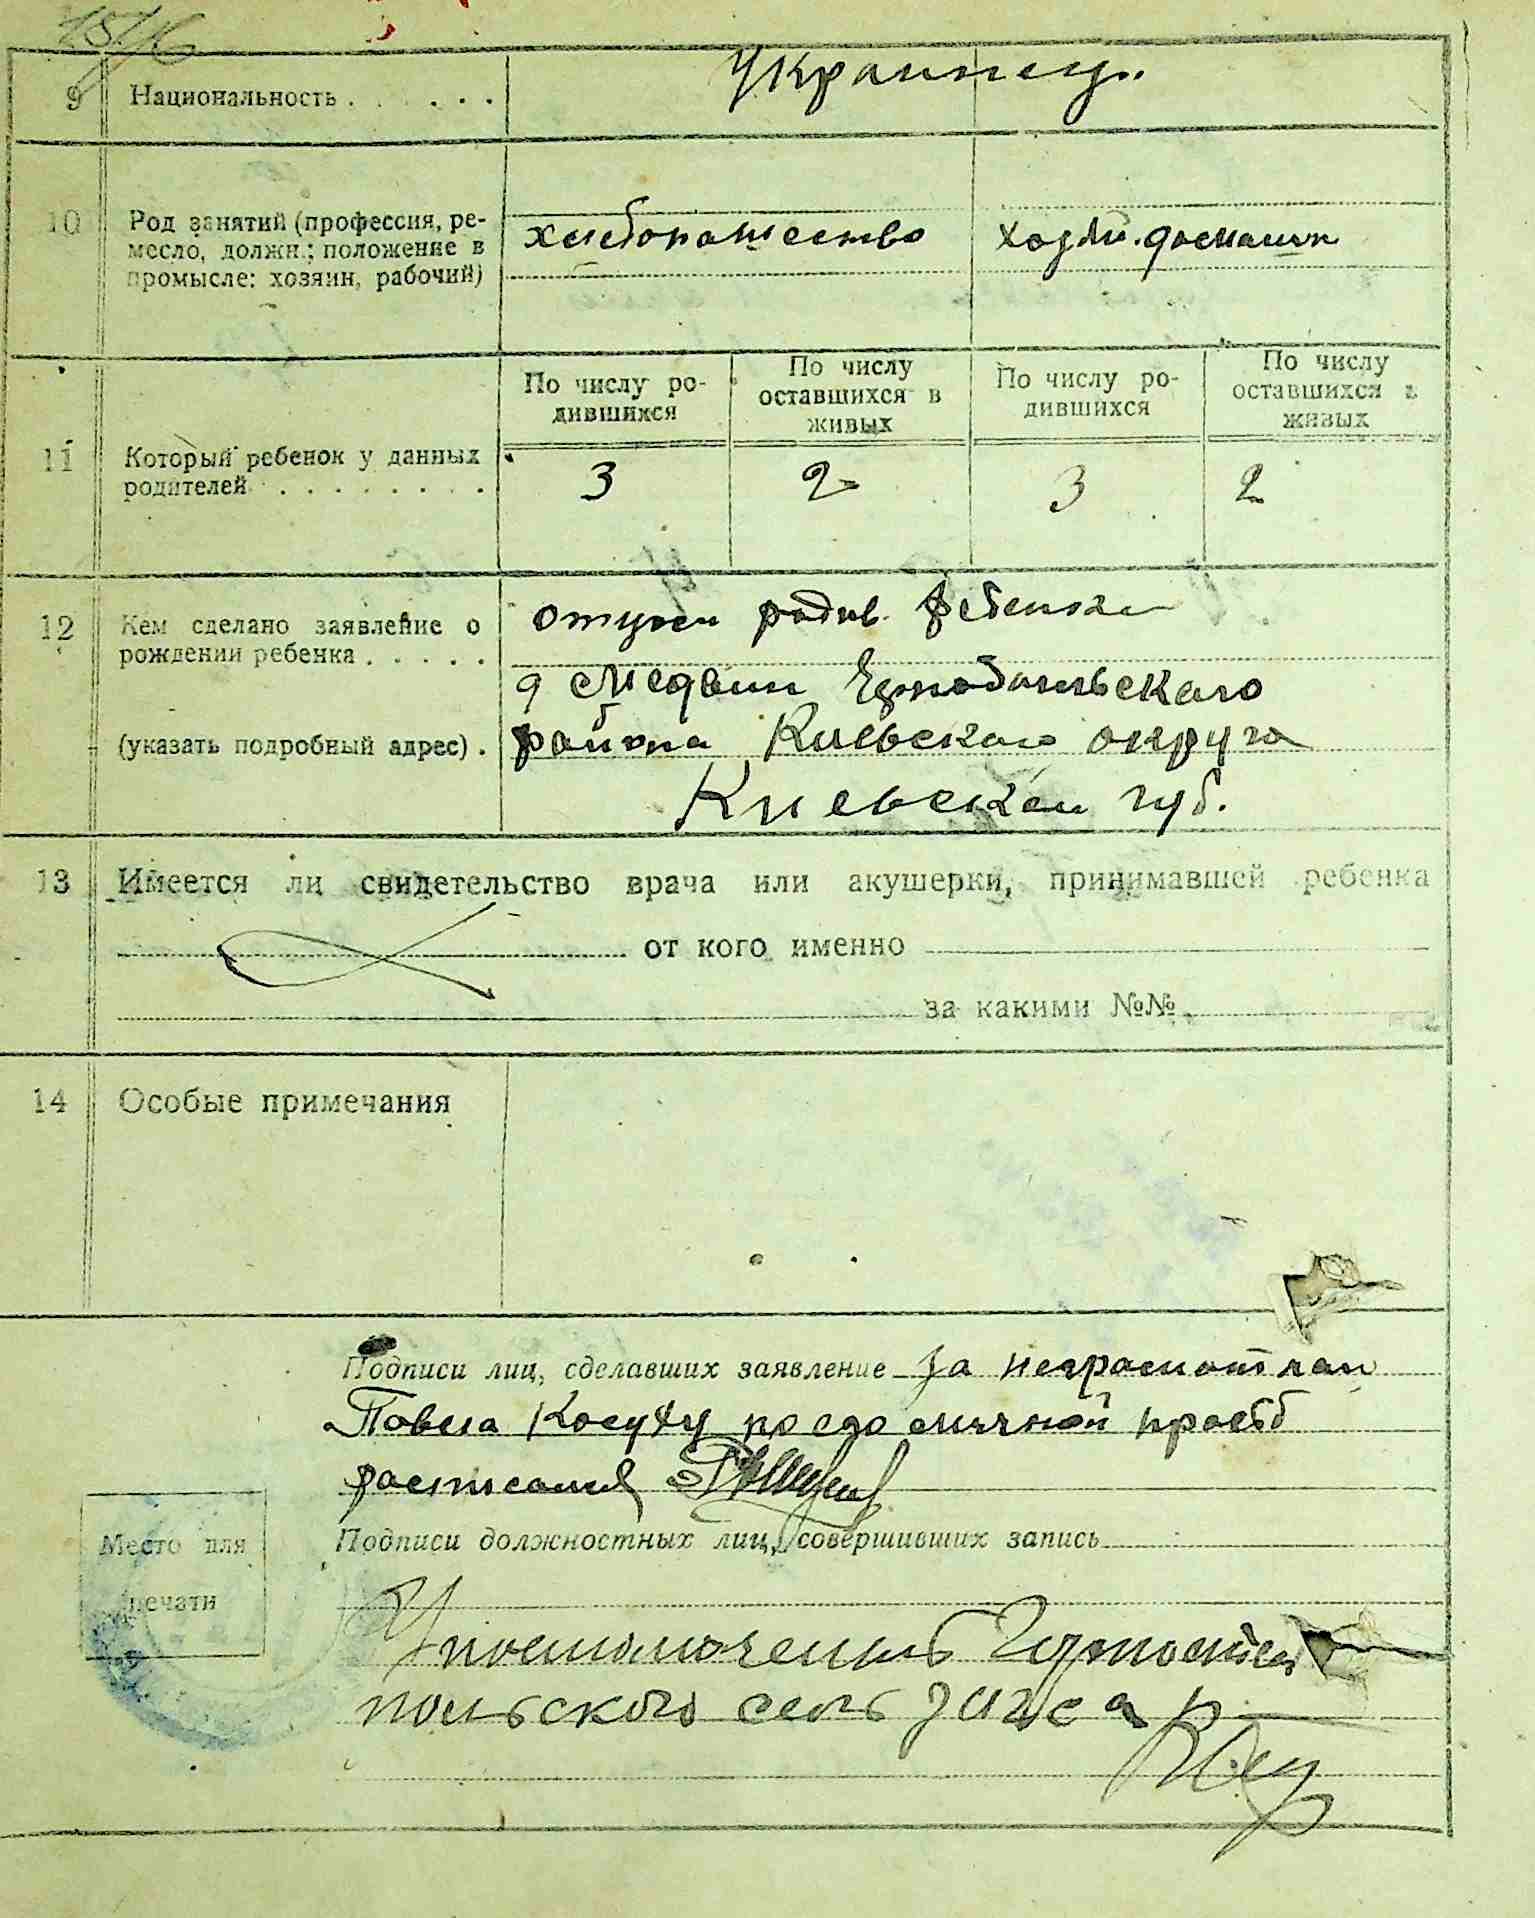 9 Национальность . . . . . . Украинец.
10 Род занятий (профессия, ре-
месло, должн.; положение в
промысле: хозяин, рабочий)
хлебопашество хозяй. домашн
По числу ро-
дившихся
По числу
оставшихся в
живых
По числу ро-
дившихся
По числу
оставшихся в
живых
11 Который ребенок у данных
родителей . . . . . . . .
3 2 3 2
12 Кем сделано заявление о
рождении ребенка . . . . .
отцом родив. ребенка
д Медвин
(указать подробный адрес) .
района Киевского округа
Киевской губ.
13 Имеется ли свидетельство врача или акушерки, принимавшей ребенка
от кого именно
за какими №№
14 Особые примечания
Подписи лиц, сделавших заявление за неграмотного
Павла по его личной просьб
расписался
Место для
печати
Подписи должностных лиц, совершивших запись
Уполномочений
польского сель загса